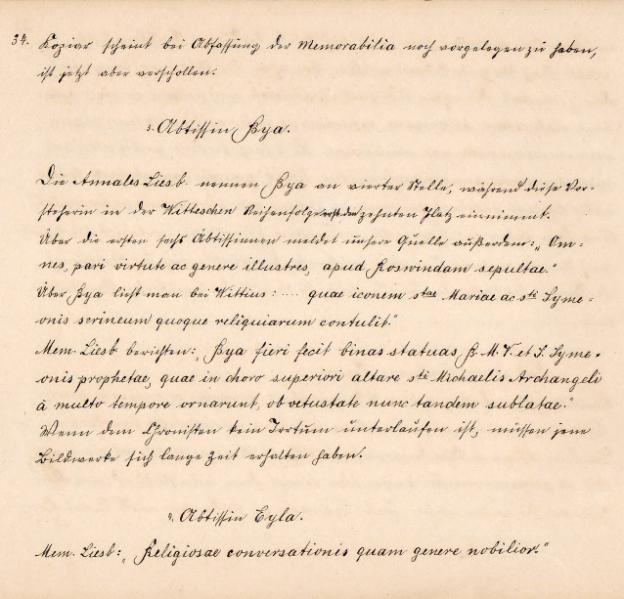 34. Kopiar scheint bei Abfassung der Memorabilia noch vorgelegen zu haben,
ist jetzt aber verschollen.
3. Äbtissin Bya.
Die Annales Liesb. nennen Bya an vierter Stelle, während diese Vor-
steherin in der Witteschen Reihenfolge erst den zehnten Platz einnimmt.
Über die ersten sechs Äbtissinnen meldet unsere Quelle außerdem: „Om-
nes, pari virtute ac genere illustres, apud Roswindam sepultae."
Über Bya liest man bei Wittius: .... quae iconem stae Mariae ac sti Syme-
onis scrineum quoque reliquiarum contulit."
Mem. Liesb. berichten: „Bya fieri fecit binas statuas B. M. V. et S. Syme-
onis prophetae, quae in choro superiori altare sti Michaelis Archangeli
à multo tempore ornarunt, ob vetustate nunc tandem sublatae."
Wenn dem Chronisten kein Irrtum unterlaufen ist, müssen jene
Bildwerke sich lange Zeit erhalten haben.
Äbtissin Eyla.
Mem. Liesb.: „Religiosae conversationis quam genere nobilior."